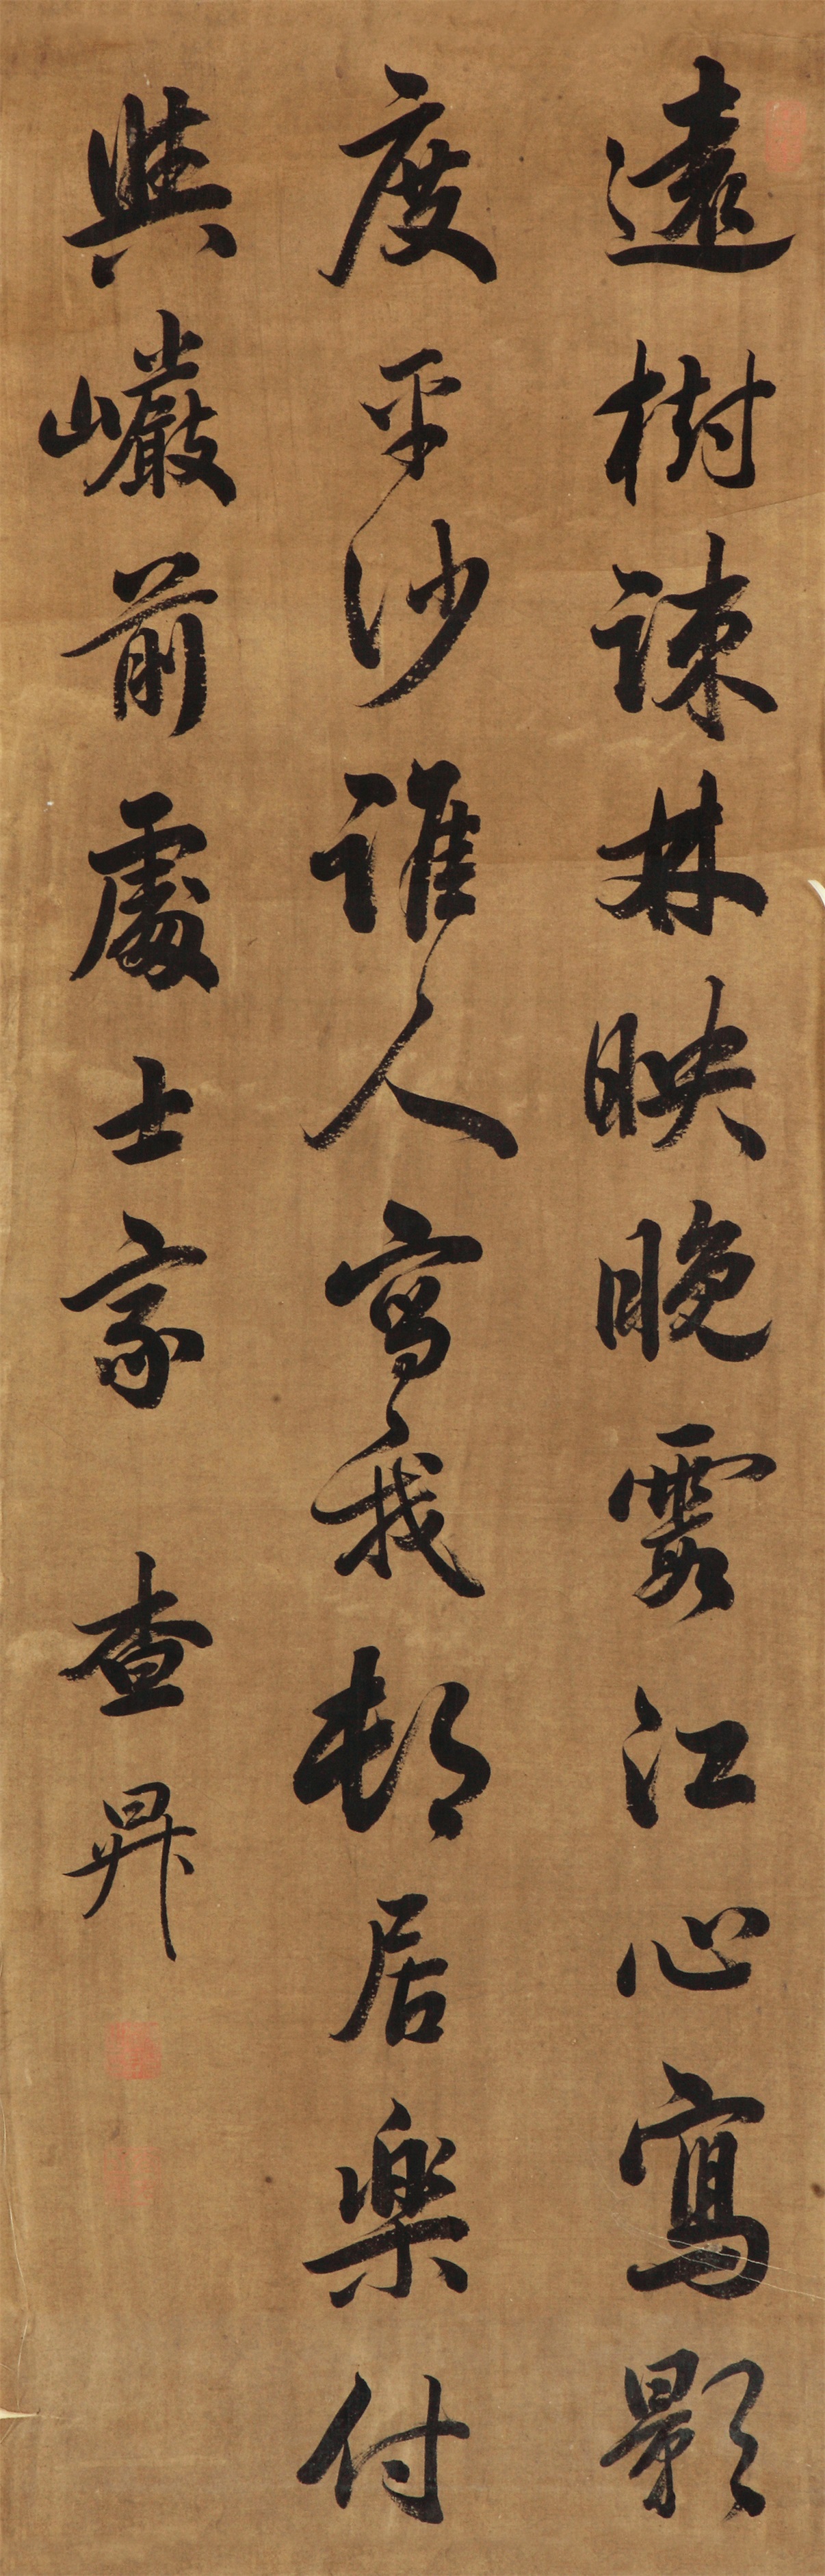 遠樹疎林映晚霞江心寫影
度平沙誰人寫我邨居樂付
與巖前處士家 查昇